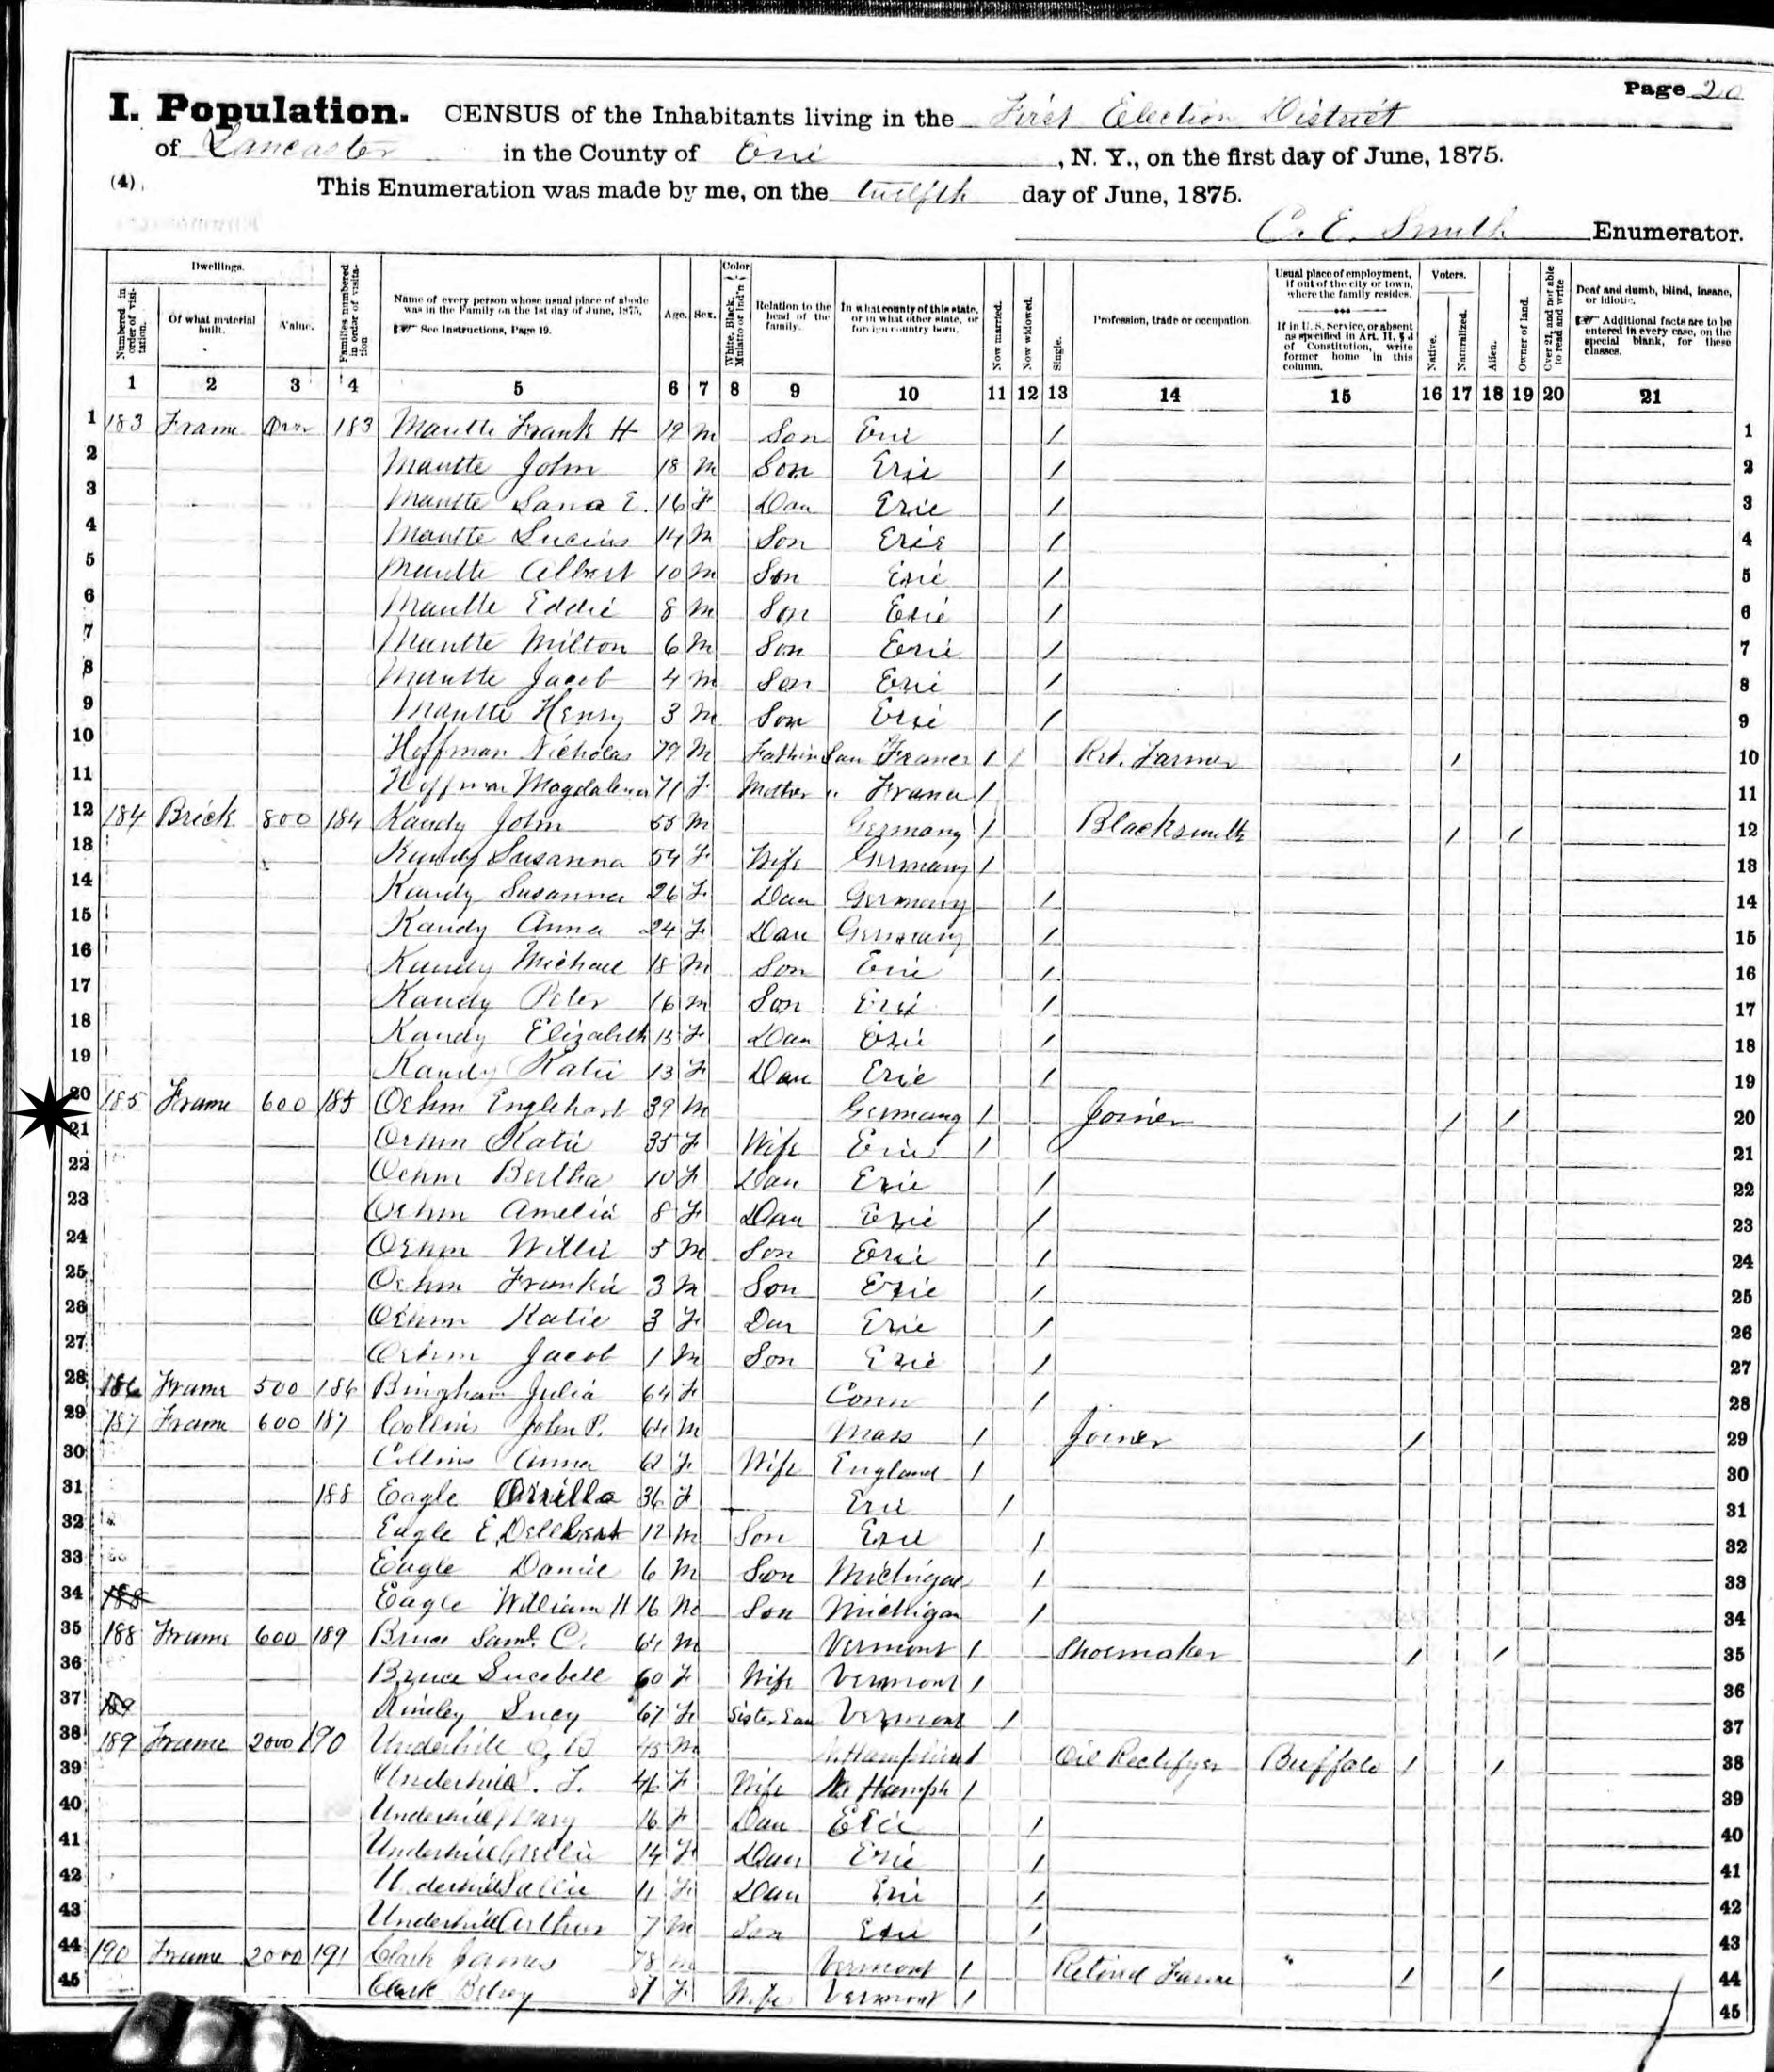 Page 20
I. Population. CENSUS of the Inhabitants living in the First Election District
of Lancaster in the County of Erie, N. Y., on the first day of June, 1875.
(4) This Enumeration was made by me, on the twelfth day of June, 1875.
C. E. Smith Enumerator.
Dwellings. Numbered in order of visitation. Of what material built. Value. Families numbered in order of visitation Name of every person whose usual place of abode was in the Family on the 1st day of June, 1875. See Instructions, Page 19. Age. Sex. Color White, Black, Mulatto or Ind'n Relation to the head of the family. In what county of this state, or in what other state, or foreign country born. Now married. Now widowed. Single. Profession, trade or occupation. Usual place of employment, if out of the city or town, where the family resides. If in U. S. Service, or absent as specified in Art. II, § 3 of Constitution, write former home in this column. Voters. Native. Naturalized. Alien. Owner of land. Over 21, and not able to read and write Deaf and dumb, blind, insane, or idiotic. Additional facts are to be entered in every case, on the special blank, for these classes.
1 2 3 4 5 6 7 8 9 10 11 12 13 14 15 16 17 18 19 20 21
1 183 Frame 183 Mantte Frank H 19 M Son Erie / 1
2 Mantte John 18 M Son Erie / 2
3 Mantte E. 16 F Dau Erie / 3
4 Mantte Lucius 14 M Son Erie / 4
5 Mantte Albert 10 M Son Erie / 5
6 Mantte Eddie 8 M Son Erie / 6
7 Mantte Milton 6 M Son Erie / 7
8 Mantte Jacob 4 M Son Erie / 8
9 Mantte Henry 3 M Son Erie / 9
10 Hoffman Nicholas 79 M Father in Law France / / Ret. Farmer / 10
11 Hoffman Magdalena 71 F Mother " France / 11
12 184 Brick 800 184 Kandy John 55 M Germany / Blacksmith / / 12
13 Kandy Susanna 54 F Wife Germany / 13
14 Kandy Susanna 26 F Dau Germany / 14
15 Kandy Anna 24 F Dau Germany / 15
16 Kandy Michael 18 M Son Erie / 16
17 Kandy Peter 16 M Son Erie / 17
18 Kandy Elizabeth 15 F Dau Erie / 18
19 Kandy Katie 13 F Dau Erie / 19
20 185 Frame 600 185 Oehm Englehart 39 M Germany / Joiner / / 20
21 Oehm Katie 35 F Wife Erie / 21
22 Oehm Bertha 10 F Dau Erie / 22
23 Oehm Amelia 8 F Dau Erie / 23
24 Oehm Willie 5 M Son Erie / 24
25 Oehm Frankie 3 M Son Erie / 25
26 Oehm Katie 3 F Dau Erie / 26
27 Oehm Jacob 1 M Son Erie / 27
28 186 Frame 500 186 Bingham Julia 64 F Conn / 28
29 187 Frame 600 187 Collins John P. 64 M Mass / Joiner / 29
30 Collins Anna 62 F Wife England / 30
31 188 Eagle Orrilla 36 F Erie / 31
32 Eagle E. Dellbert 12 M Son Erie / 32
33 Eagle 6 M Son Michigan / 33
34 188 Eagle William H 16 M Son Michigan / 34
35 188 Frame 600 189 Bruce Saml. C. 64 M Vermont / Shoemaker / / 35
36 Bruce Lucebell 60 F Wife Vermont / 36
37 189 Lucy 67 F Sister Law Vermont / 37
38 189 Frame 2000 190 Underhill 45 M N. Hampshire / Oil Rectifyer Buffalo / / 38
39 Underhill F Wife N. Hamph / 39
40 Underhill Mary 16 F Dau Erie / 40
41 Underhill Nellie 14 F Dau Erie / 41
42 Underhill Sallie 11 F Dau Erie / 42
43 Underhill Arthur 7 M Son Erie / 43
44 190 Frame 2000 191 Clark James 78 M Vermont / Retired Farmer " / / 44
45 Clark Betsey F Wife Vermont / 45